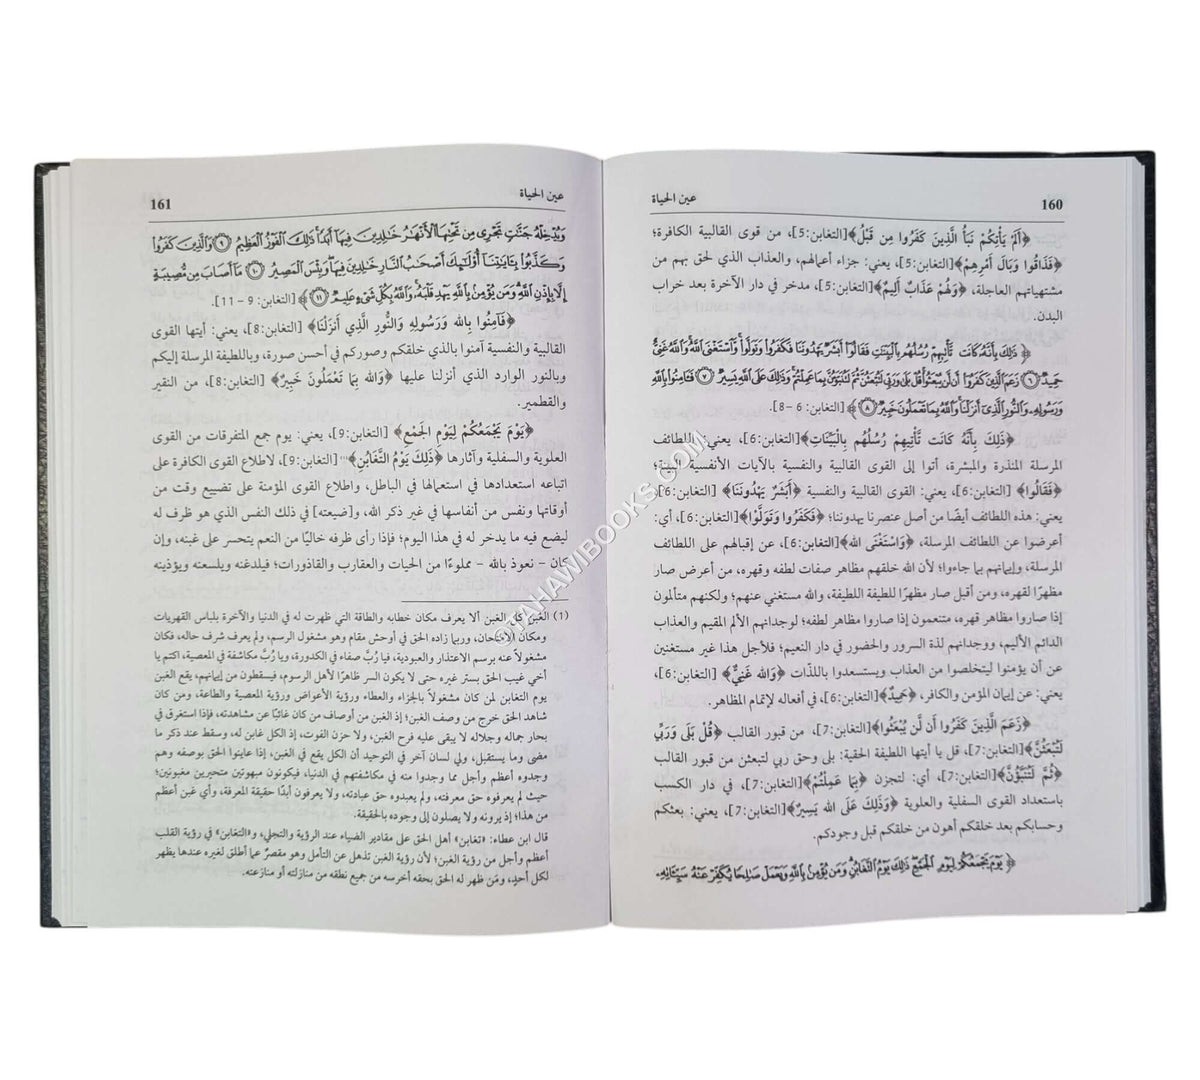 160
عين الحياة
﴿أَلَمْ يَأْتِكُمْ نَبَأُ الَّذِينَ كَفَرُوا مِن قَبْلُ﴾[التغابن:5]، من قوى القالبية الكافرة؛
﴿فَذَاقُوا وَبَالَ أَمْرِهِمْ﴾[التغابن:5]، يعني: جزاء أعمالهم، والعذاب الذي لحق بهم من
مشتهياتهم العاجلة، ﴿وَلَهُمْ عَذَابٌ أَلِيمٌ﴾[التغابن:5]، مدخر في دار الآخرة بعد خراب
البدن.
﴿ ذَٰلِكَ بِأَنَّهُۥ كَانَت تَّأْتِيهِمْ رُسُلُهُم بِٱلْبَيِّنَٰتِ فَقَالُوٓا۟ أَبَشَرٌ يَهْدُونَنَا فَكَفَرُوا۟ وَتَوَلَّوا۟ ۚ وَّٱسْتَغْنَى ٱللَّهُ ۚ وَٱللَّهُ غَنِىٌّ
حَمِيدٌ ٦ زَعَمَ ٱلَّذِينَ كَفَرُوٓا۟ أَن لَّن يُبْعَثُوا۟ ۚ قُلْ بَلَىٰ وَرَبِّى لَتُبْعَثُنَّ ثُمَّ لَتُنَبَّؤُنَّ بِمَا عَمِلْتُمْ ۚ وَذَٰلِكَ عَلَى ٱللَّهِ يَسِيرٌ ٧ فَـَٔامِنُوا۟ بِٱللَّهِ
وَرَسُولِهِۦ وَٱلنُّورِ ٱلَّذِىٓ أَنزَلْنَا ۚ وَٱللَّهُ بِمَا تَعْمَلُونَ خَبِيرٌ ٨ ﴾ [التغابن: 6 –8].
﴿ذَلِكَ بِأَنَّهُ كَانَت تَّأْتِيهِمْ رُسُلُهُم بِالْبَيِّنَاتِ﴾[التغابن:6]، يعني: اللطائف
المرسلة المنذرة والمبشرة، أتوا إلى القوى القالبية والنفسية بالآيات الأنفسية البينة؛
﴿فَقَالُوا﴾ [التغابن:6]، يعني: القوى القالبية والنفسية ﴿أَبَشَرٌ يَهْدُونَنَا﴾ [التغابن:6]
يعني: هذه اللطائف أيضًا من أصل عنصرنا يهدوننا؛ ﴿فَكَفَرُوا وَتَوَلَّوْا﴾[التغابن:6]، أي:
أعرضوا عن اللطائف المرسلة، ﴿وَاسْتَغْنَى الله﴾[التغابن:6]، عن إقبالهم على اللطائف
المرسلة، وإيمانهم بما جاءوا؛ لأن الله خلقهم مظاهر صفات لطفه وقهره، من أعرض صار
مظهرًا لقهره، ومن أقبل صار مظهرًا للطيفة اللطيفة، والله مستغني عنهم؛ ولكنهم متألمون
إذا صاروا مظاهر قهره، متنعمون إذا صاروا مظاهر لطفه؛ لوجدانهم الألم المقيم والعذاب
الدائم الأليم، ووجدانهم لذة السرور والحضور في دار النعيم؛ فلأجل هذا غير مستغنين
عن أن يؤمنوا ليتخلصوا من العذاب ويستسعدوا باللذات ﴿وَالله غَنِيٌّ﴾ [التغابن:6]،
يعني: عن إيمان المؤمن والكافر، ﴿حَمِيدٌ﴾ [التغابن:6]، في أفعاله لإتمام المظاهر.
﴿زَعَمَ الَّذِينَ كَفَرُوا أَن لَّن يُبْعَثُوا﴾[التغابن:7]، من قبور القالب ﴿قُلْ بَلَى وَرَبِّي
لَتُبْعَثُنَّ﴾[التغابن:7]، قل يا أيتها اللطيفة الحقية: بلى وحق ربي لتبعثن من قبور القالب
﴿ثُمَّ لَتُنَبَّؤُنَّ﴾[التغابن:7]، أي: لتجزن ﴿بِمَا عَمِلْتُمْ﴾[التغابن:7]، في دار الكسب
باستعداد القوى السفلية والعلوية ﴿وَذَلِكَ عَلَى الله يَسِيرٌ﴾[التغابن:7]، يعني: بعثكم
وحسابكم بعد خلقكم أهون من خلقكم قبل وجودكم.
﴿ يَوْمَ يَجْمَعُكُمْ لِيَوْمِ ٱلْجَمْعِ ۖ ذَٰلِكَ يَوْمُ ٱلتَّغَابُنِ ۗ وَمَن يُؤْمِنۢ بِٱللَّهِ وَيَعْمَلْ صَٰلِحًا يُكَفِّرْ عَنْهُ سَيِّـَٔاتِهِۦ
عين الحياة
161
وَيُدْخِلْهُ جَنَّٰتٍ تَجْرِى مِن تَحْتِهَا ٱلْأَنْهَٰرُ خَٰلِدِينَ فِيهَآ أَبَدًا ۚ ذَٰلِكَ ٱلْفَوْزُ ٱلْعَظِيمُ ٩ وَٱلَّذِينَ كَفَرُوا۟
وَكَذَّبُوا۟ بِـَٔايَٰتِنَآ أُو۟لَٰٓئِكَ أَصْحَٰبُ ٱلنَّارِ خَٰلِدِينَ فِيهَا ۖ وَبِئْسَ ٱلْمَصِيرُ ١٠ مَآ أَصَابَ مِن مُّصِيبَةٍ
إِلَّا بِإِذْنِ ٱللَّهِ ۗ وَمَن يُؤْمِنۢ بِٱللَّهِ يَهْدِ قَلْبَهُۥ ۚ وَٱللَّهُ بِكُلِّ شَىْءٍ عَلِيمٌ ١١ ﴾ [التغابن: 9 – 11].
﴿فَآمِنُوا بِالله وَرَسُولِهِ وَالنُّورِ الَّذِي أَنزَلْنَا﴾ [التغابن:8]، يعني: أيتها القوى
القالبية والنفسية آمنوا بالذي خلقكم وصوركم في أحسن صورة، وباللطيفة المرسلة إليكم
وبالنور الوارد الذي أنزلنا عليها ﴿وَالله بِمَا تَعْمَلُونَ خَبِيرٌ﴾ [التغابن:8]، من النقير
والقطمير.
﴿يَوْمَ يَجْمَعُكُمْ لِيَوْمِ الجَمْعِ﴾ [التغابن:9]، يعني: يوم جمع المتفرقات من القوى
العلوية والسفلية وآثارها ﴿ذَلِكَ يَوْمُ التَّغَابُنِ﴾(1)[التغابن:9]، لاطلاع القوى الكافرة على
اتباعه استعدادها في استعمالها في الباطل، واطلاع القوى المؤمنة على تضييع وقت من
أوقاتها ونفس من أنفاسها في غير ذكر الله، و[ضيعته] في ذلك النفس الذي هو ظرف له
ليضع فيه ما يدخر له في هذا اليوم؛ فإذا رأى ظرفه خاليًا من النعم يتحسر على غبنه، وإن
كان – نعوذ بالله – مملوءًا من الحيات والعقارب والقاذورات؛ فيلدغنه ويلسعنه ويؤذينه
(1) الغبن كل الغبن ألا يعرف مكان خطابه والطاقة التي ظهرت له في الدنيا والآخرة بلباس القهريات
ومكان الامتحان، وربما زاده الحق في أوحش مقام وهو مشغول الرسم، ولم يعرف شرف حاله، فكان
مشغولاً عنه برسم الاعتذار والعبودية، فيا رُبَّ صفاء في الكدورة، ويا رُبَّ مكاشفة في المعصية، اكتم يا
أخي غيب الحق بستر غيره حتى لا يكون السر ظاهرًا لأهل الرسوم، فيسقطون من إيمانهم، يقع الغبن
يوم التغابن لمن كان مشغولاً بالجزاء والعطاء ورؤية الأعواض ورؤية المعصية والطاعة، ومن كان
شاهد الحق خرج من وصف الغبن؛ إذ الغبن من أوصاف من كان غائبًا عن مشاهدته، فإذا استغرق في
بحار جماله وجلاله لا يبقى عليه فرح الغبن، ولا حزن الفوت، إذ الكل غابن له، وسقط عند ذكر ما
مضى وما يستقبل، ولي لسان آخر في التوحيد أن الكل يقع في الغبن، إذا عاينوا الحق بوصفه وهم
وجدوه أعظم وأجل مما وجدوا منه في مكاشفتهم في الدنيا، فيكونون مبهوتين متحيرين مغبونين؛
حيث لم يعرفوه حق معرفته، ولم يعبدوه حق عبادته، ولا يعرفون أبدًا حقيقة المعرفة، وأي غبن أعظم
من هذا؛ إذ يرونه ولا يصلون إلى وجوده بالحقيقة.
قال ابن عطاء: تغابن» أهل الحق على مقادير الضياء عند الرؤية والتجلي، و«التغابن» في رؤية القلب
أعظم وأجل من رؤية الغبن؛ لأن رؤية الغبن تذهل عن التأمل وهو مقصرٌ عما أطلق لغيره عندها يظهر
لكل أحدٍ، ومَن ظهر له الحق بحقه أخرسه من جميع نطقه من منازلته أو منازعته.
©TAHAWIBOOKS.COM